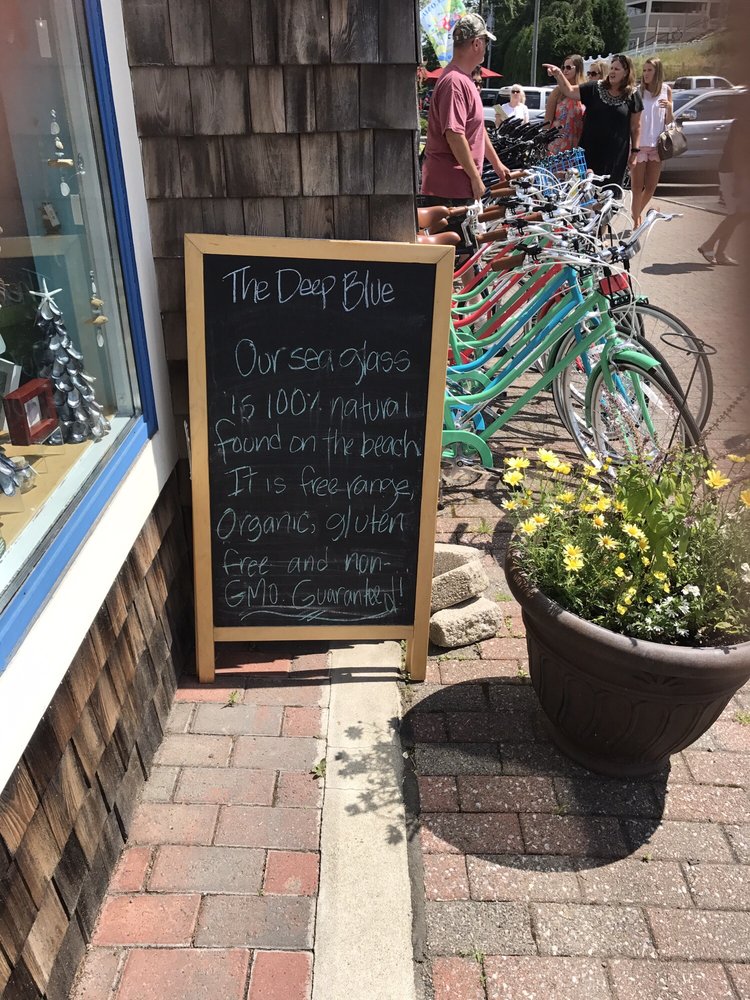 The Deep Blue
Our sea glass
is 100% natural
found on the beach.
It is free-range,
Organic, gluten
free and non-
GMO. Guaranteed!